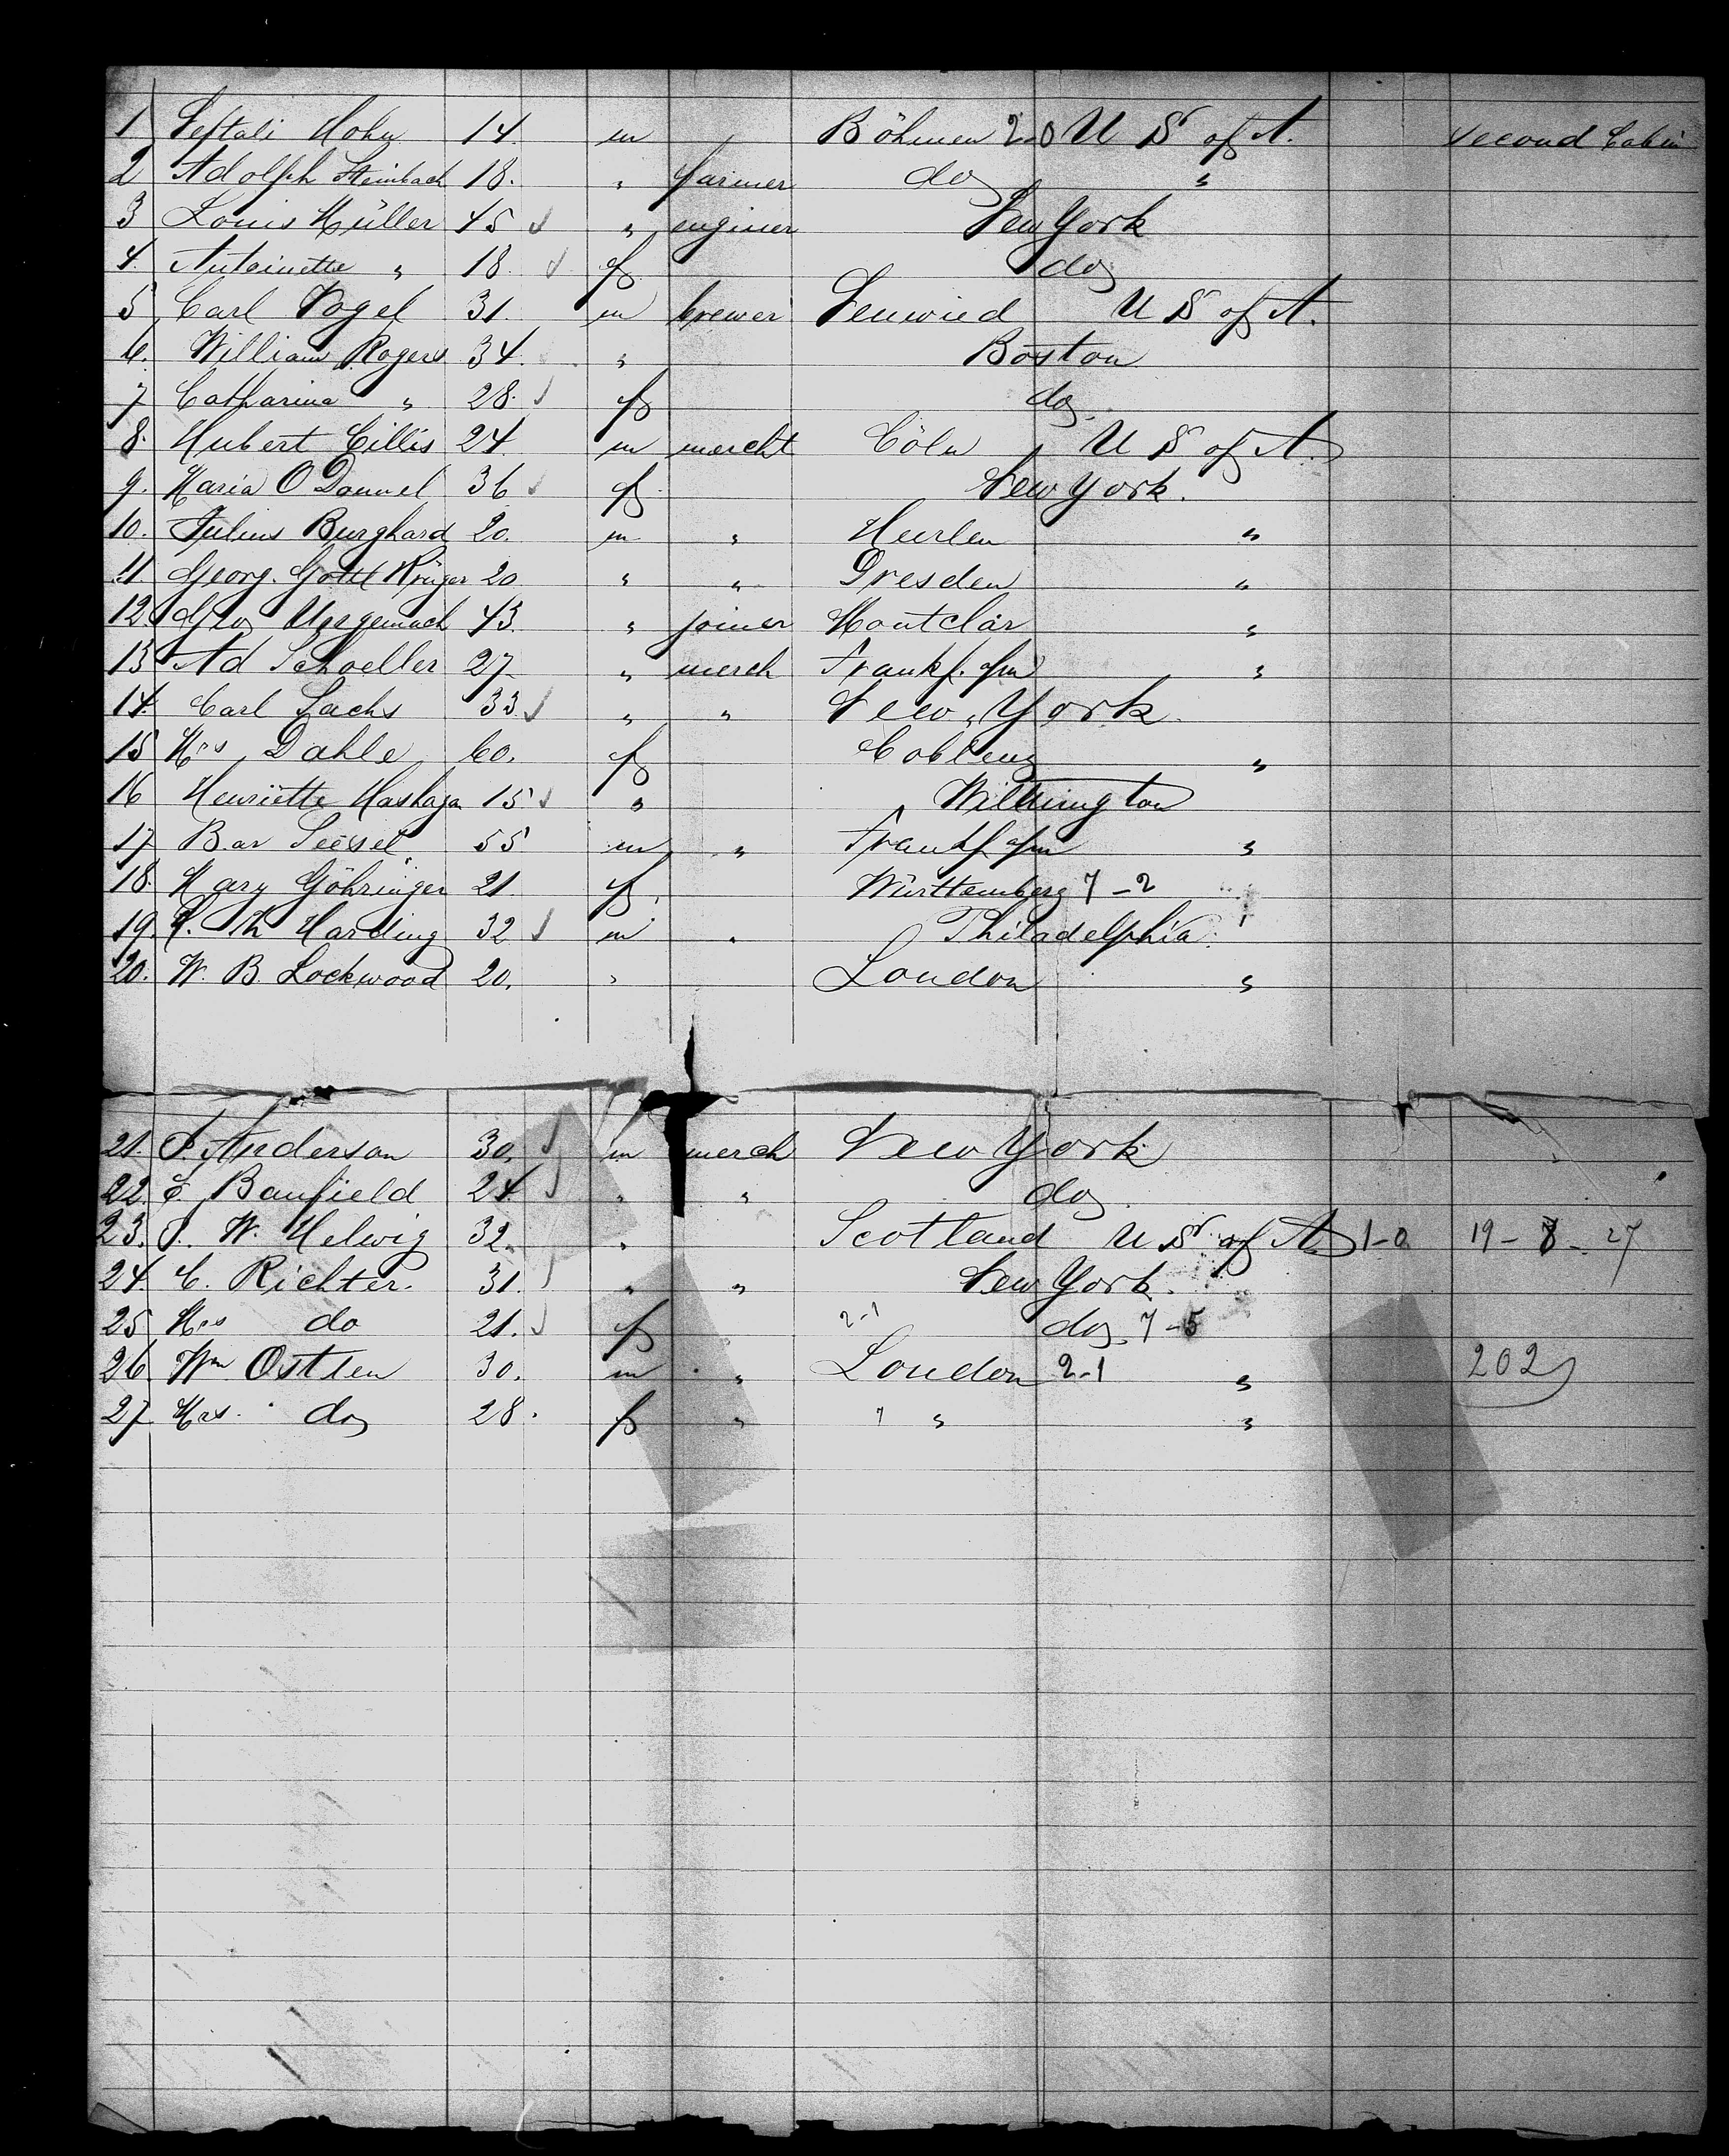 1 Neftali Hohn 14. m Böhmen 2-0 U S of A. Second Cabin
2 Adolph Steinbach 18. " farmer do "
3 Louis Müller 45 ✓ " enginer New York
4. Antoinette " 18. ✓ f do
5 Carl Vogel 31. m brewer Neuwied U S of A.
6. William Rogers 34. " Boston
7 Catharina " 28. ✓ f do.
8. Hubert Cillis 24. m mercht Cöln U S of A.
9. Maria O Donnel 36 ✓ f New York.
10. Julius Burghard 20. m " "
11. Georg. Gottl Krüger 20 " " Dresden "
12 Geo 43. " joiner Montclar "
13 Ad Schoeller 27. " merch Frankf. a/m "
14. Carl Sachs 33 ✓ " " New York.
15 Mrs Dahle 60. f Coblenz "
16 Henriette Hashagen 15 ✓ " Wilmington
17 Bar Seesel 55 m " Frankf a/m "
18. Mary Göhringer 21 f. Württemberg 7-2 "
19. Th Harding 32 ✓ m " Philadelphia.
20. W. B. Lockwood 20. " London "
21. Anderson 30. ✓ m merch New York
22. Banfield 24. ✓ " " do
23. W. Helwig 32. " Scotland U S of A. 1-0 19-8-27
24. C. Richter. 31. ✓ " " New York.
25 Mrs do 21. ✓ f " 2-1 do. 7-5
26 Wm Ostlen 30. m " London 2-1 " 202
27 Mrs. do 28. f " " "